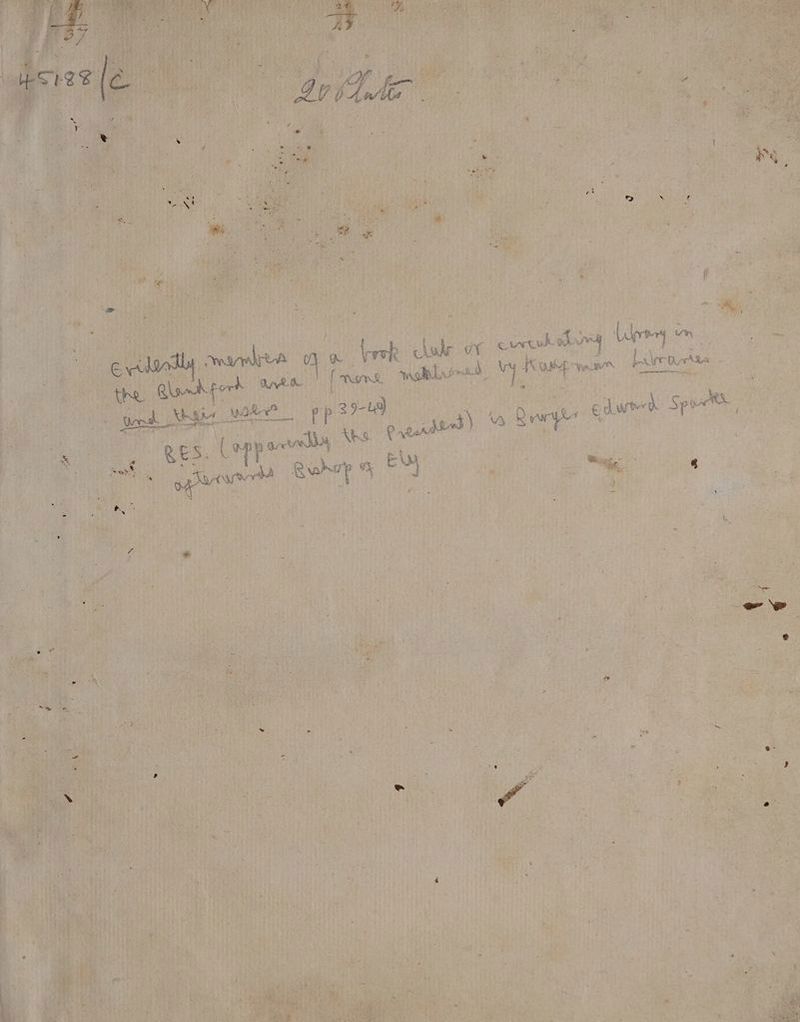 37
45188/c
Plates
Evidently members of a book club or circulating library in
the Blandford area (none mentioned by Kaufman Libraries
and their users pp 39-49)
BES. (apparently the President) is Bowyer Edward Sparke,
afterwards Bishop of Ely